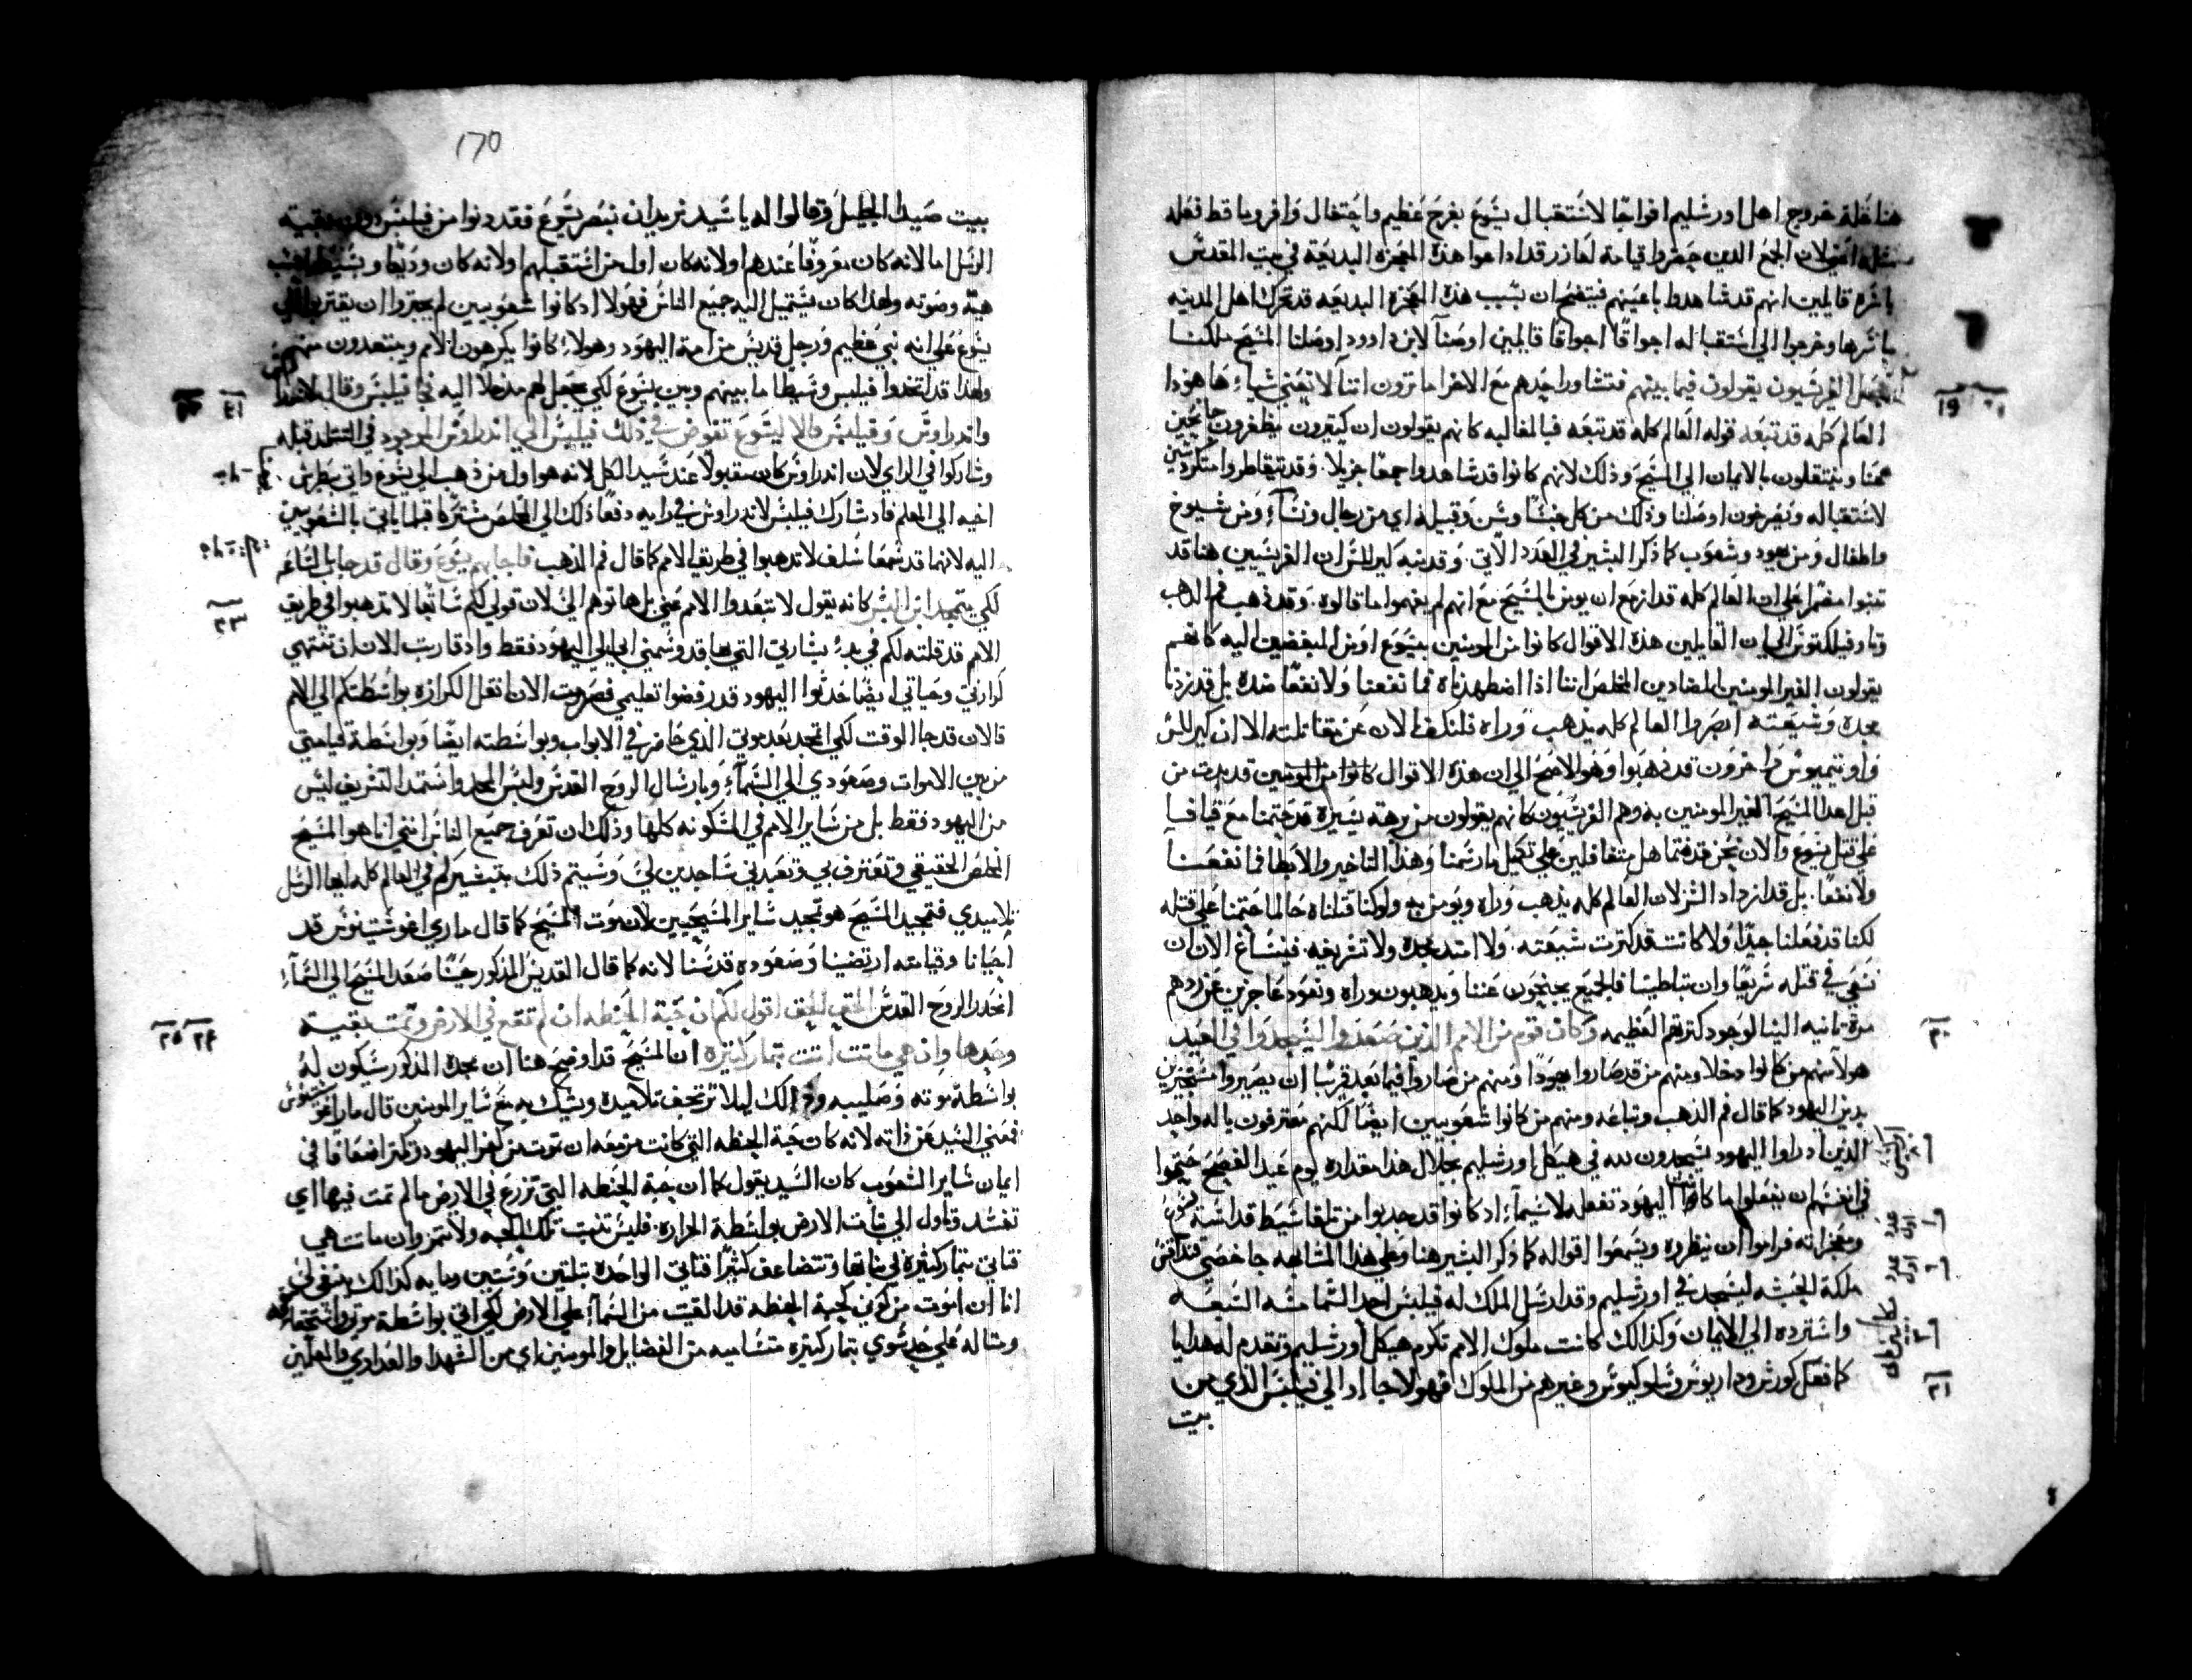 هنا غلة خروج اهل اورشليم افواجًا لاستقبال يسوع بفرح عظيم واحتفال وافر وما قط فعله
مثله اعني لان الجمع الذين حضروا قيامة لعازر قد اداعوا هذه المعجزة البديعة في بيت المقدس
باسره قايلين انهم قد شاهدوا باعينهم فيتضح ان بسبب هذه المعجزة البديعه قد تحرك اهل المدينه
باسرها وخرجوا الي استقباله اجواقًا اجواقا قايلين اوصنا لابن داوود اوصلنا المسيح ملكنا
الفريسيون يقولون فيما بينهم فتشاور احدهم مع الاخر اما ترون اننا لا نعني شياء هاهوذا
العالم كله قد تبعه قوله العالم كله قد تبعه فبالمغالبه كانهم يقولون ان كثيرون يظفرون
عنا وينتقلون بالايمان الي المسيح وذلك لانهم كانوا قد شاهدوا جمعًا جزيلا وقد تقاطروا
لاستقباله ويصرخون اوصلنا وذلك من كل جنس وسن وقبيله اي من رجال ونساء ومن شيوخ
واطفال ومن يهود وشعوب كما ذكر البشير في العدد الاتي. وقد نبه كيرللس ان الفريسيين هنا قد
تنبوا مضمرًا علي ان العالم كله قد ازمع ان يومن بالمسيح مع انهم لم يفهموا ما قالوه. وقد ذهب فم الدهب
وثاوفيلكتوس الي ان القايلين هذه الاقوال كانوا من المومنين بيسوع او من المبغضين اليه كانهم
يقولون الغير المومنين المضادين المخلص اننا اذا اضطهدناه فما نفعنا ولا نفعًا ضده بل قد زدنا
مجده وشيعته ابصروا العالم كله يذهب وراه فلنكف الان عن مقاتلته الا ان كيرللس
واوتيميوس واخرون قد ذهبوا وهو الاصح الي ان هذه الاقوال كانوا من المومنين قد بدت من
قبل اهدا المسيح الغير المومنين به وهم الفريسيون كانهم يقولون من برهة يسيرة قد حتمنا مع قيافا
علي قتل يسوع والان نحن قدمتما هل متغافلين علي تكميل ما رسمنا وهذا التاخير والابطا فما نفعنا
ولا نفعًا. بل قد ازداد الشر لان العالم كله يذهب وراه ويومن به ولو كنا قتلناه حالما حتمنا علي قتله
لكنا قد فعلنا جيدًا ولا كانت قد كثرت شيعته. ولا امتد مجده ولا تشريفه. فينساغ الان ان
نسعي في قتله سريعًا وان تباطينا فالجميع يجنحون عننا ويذهبون وراه ونعود عاجزين عن ردهم
مرة ثانيه الينا لوجود كثرتهم العظيمه وكان قوم من الامم الذين صعدوا ليسجدوا في العيد
هولا منهم من كانوا دخلا ومنهم من قد صاروا يهودًا ومنهم من صاروا فيما بعد قريبًا ان يصيروا
بدين اليهود كما قال فم الدهب وتباعه ومنهم من كانوا شعوبيين ايضًا لكنهم معترفون باله واحد
الذين اد راوا اليهود يسجدون لله في هيكل اورشليم بجلال هذا مقداره يوم عيد الفصح حتموا
في انفسهم ان يفعلوا ما كانوا اليهود تفعله لاسيماء اد كانوا قد جدبوا من تلقا شيط قداسة يسوع
ومعجزاته فراموا ان ينظروه ويسمعوا اقواله كما ذكر البشير هنا وعلي هذا المشابهه جا خصي قنداقس
ملكة الحبشه ليسجد في اورشليم وقد ارسل الملك له فيلبس احد الشمامسه السبعه
واسترده الي الايمان وكذالك كانت ملوك الامم تكرم هيكل اورشليم وتقدم له هدايا
كما فعل كورش وداريوس وسلوكيوس وغيرهم من الملوك فهولا جا اوا الي فيلبس الذي من
بيت
١٩
٢٠
٢١
170
بيت صيدا الجليل وقالوا له يا سيد نريد ان نبصر يسوع فقد دنوا من فيلبس دون بقية
الرسل اما لانه كان معروفًا عندهم او لانه كان اول من استقبلهم او لانه كان وديعًا
هيته وصوته ولهذا كان يستميل اليه جميع الناس فهولا اد كانوا شعوبيين لم يجسروا ان يقتربوا الي
يسوع علي انه نبي عظيم ورجل قديس من امة اليهود وهولاء كانوا يكرهون الامم ويبتعدون منهم
ولهذا قد اتخدوا فيلبس وسيطًا ما بينهم وبين يسوع لكي يجعل لهم مدخلا اليه فجا فيلبس وقال لاندراوس
واندراوس وفيلبس قالا ليسوع تفوض في ذلك فيلبس الي اندراوس الموجود في التتلمد قبله
وشاركوا في الراي لان اندراوس كان مقبولا عند سيد الكل لانه هو اول من دهب الي يسوع واتي ببطرس
اخيه الي المعلم فاد شارك فيلبس لاندراوس في رايه دفعًا ذلك الي المخلص سترًا قبلما ياتي بالشعوبيين
اليه لانهما قد سمعا سلف لا تدهبوا في طريق الامم كما قال فم الذهب فاجابهم يسوع وقال قد جات الساعه
لكي يتمجد ابن البشر كانه يقول لا تبعدوا الامم عني بل هاتوهم الي لان قولي لكم سابقًا لا تدهبوا في طريق
الامم قد قلته لكم في بدء بشارتي التي بها قد وسمني ابي الي اليهود فقط واد قاربت الان ان تنتهي
كرازتي وحياتي ايضًا حدثوا اليهود قد رفضوا تعليمي فصرت الان انقل الكرازه بواسطتكم الي الامم
فالان قد جا الوقت لكي اتمجد بعد موتي الذي حاضر في الابواب وبواسطته ايضًا وبواسطة قيامتي
من بين الاموات وصعودي الي السماء وبارسال الروح القدس وليس المجد واستمد التشريف ليس
من اليهود فقط بل من ساير الامم في المسكونه كلها وذلك ان تعرف جميع الناس انني انا هو المسيح
المخلص الحقيقي وتعترف بي وتعبدني ساجدين لي وسيتم ذلك بتبشيركم في العالم كله ايها الرسل
تلاميدي فتمجيد المسيح هو تمجيد ساير المسيحيين لان موت المسيح كما قال ماري اغوستينوس قد
احيانا وقيامته انهضنا وصعوده قدسنا لانه كما قال القديس المذكور حينًا صعد المسيح الي السماء
انحدر الروح القدس الحق الحق اقول لكم ان حبة الحنطه ان لم تقع في الارض وتمت بقيت
وحدها وان هي ماتت اتت بثمار كثيره ان المسيح قد اوضح هنا ان مجده المذكور سيكون له
بواسطة موته وصليبه وذالك ليلا ترتجف تلاميده ويشك به مع ساير المومنين قال مار اغوستينوس
فمعني السيد عن ذاته لانه كان حبة الحنطه التي كانت مزمعه ان تموت من كفر اليهود وتكثر اضعافًا في
ايمان ساير الشعوب كان السيد يقول كما ان حبة الحنطه التي تزرع في الارض ما لم تمت فيها اي
تفسد وتاول الي نبات الارض بواسطة الحراره. فليس تنبت تلك الحبه ولا تثمر وان ماتت هي
فتاتي بثمار كثيره لي نباتها وتتضاعف كثيرًا فتاتي الواحده بثلثين وستين ومايه كذالك ينبغي لي
انا ان اموت من كوني كحبة الحنطه قد القيت من السماء علي الارض لكي اتي بواسطة موتي واستحقاقاته
ومثاله علي حد سوي بثمار كثيره متساميه من الفضايل والمومنين اي من الشهدا والعداري والمعلمين
٢٢
٢٣
٢٤ ٢٥